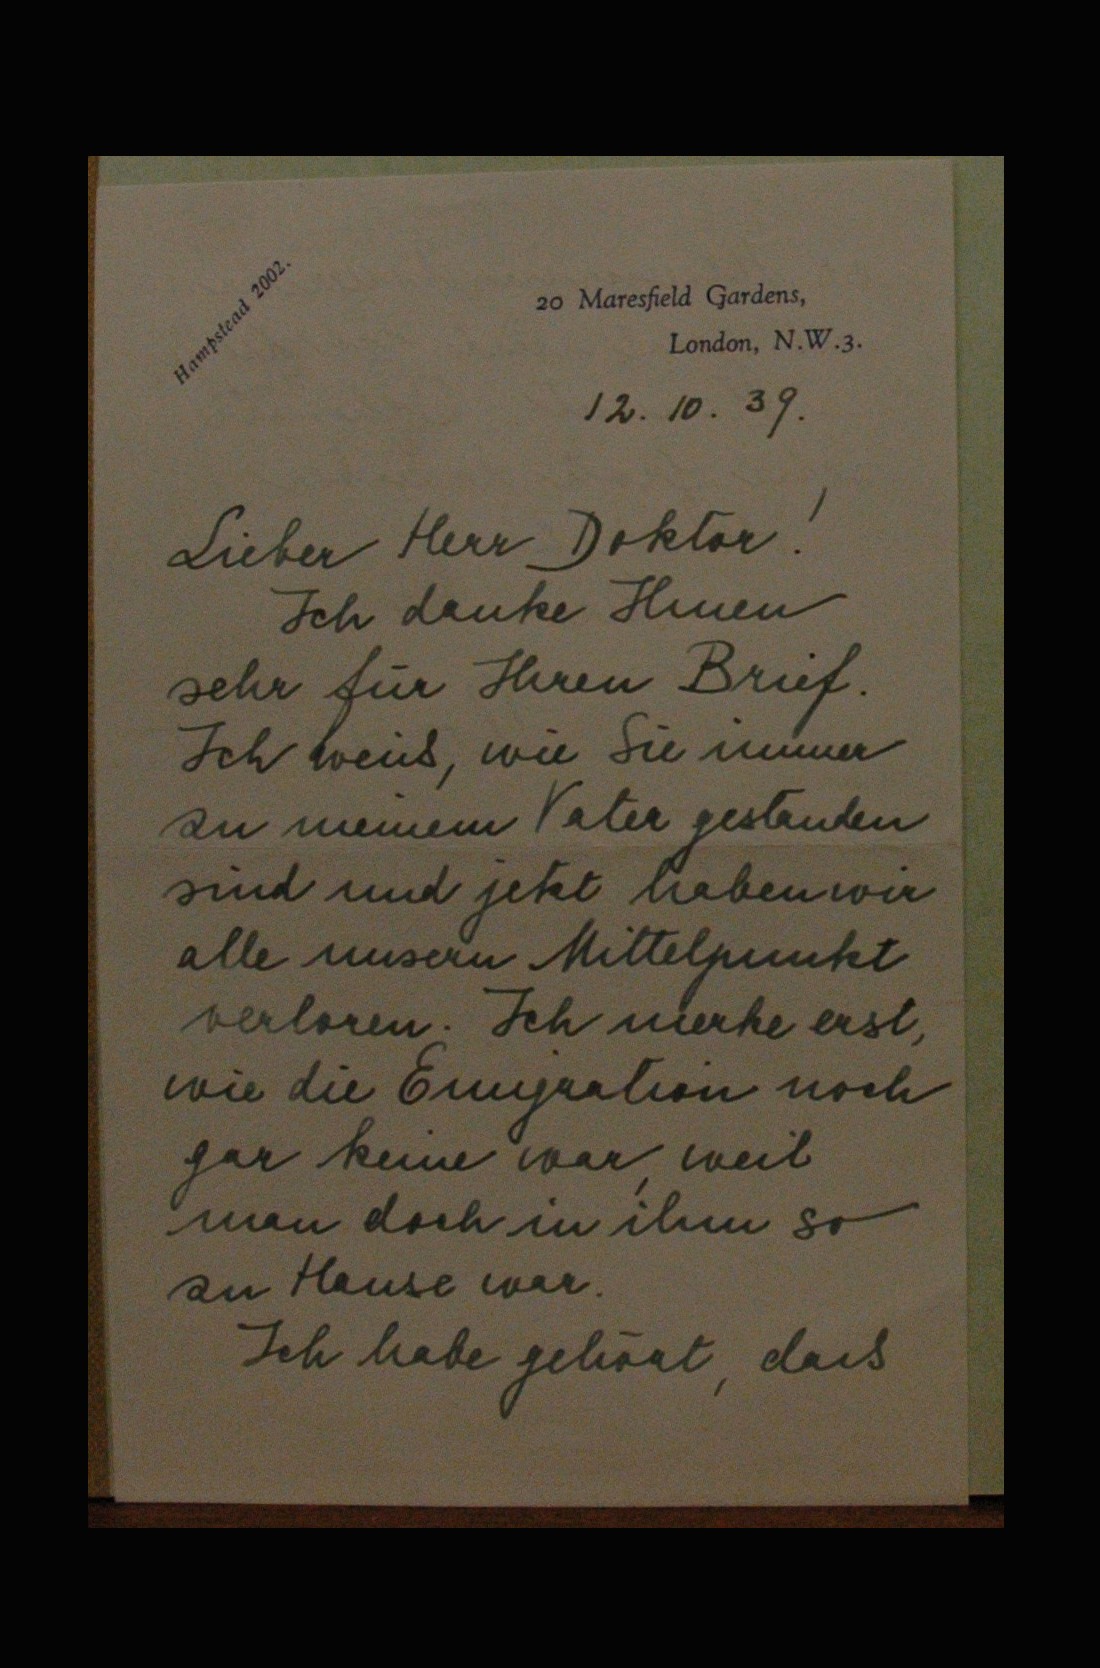 Hampstead 2002.
20 Maresfield Gardens,
London, N.W.3.
12. 10. 39.
Lieber Herr Doktor!
Ich danke Ihnen
sehr für Ihren Brief.
Ich weiß, wie Sie immer
zu meinem Vater gestanden
sind und jetzt haben wir
alle unsern Mittelpunkt
verloren. Ich merke erst,
wie die Emigration noch
gar keine war, weil
man doch in ihm so
zu Hause war.
Ich habe gehört, dass